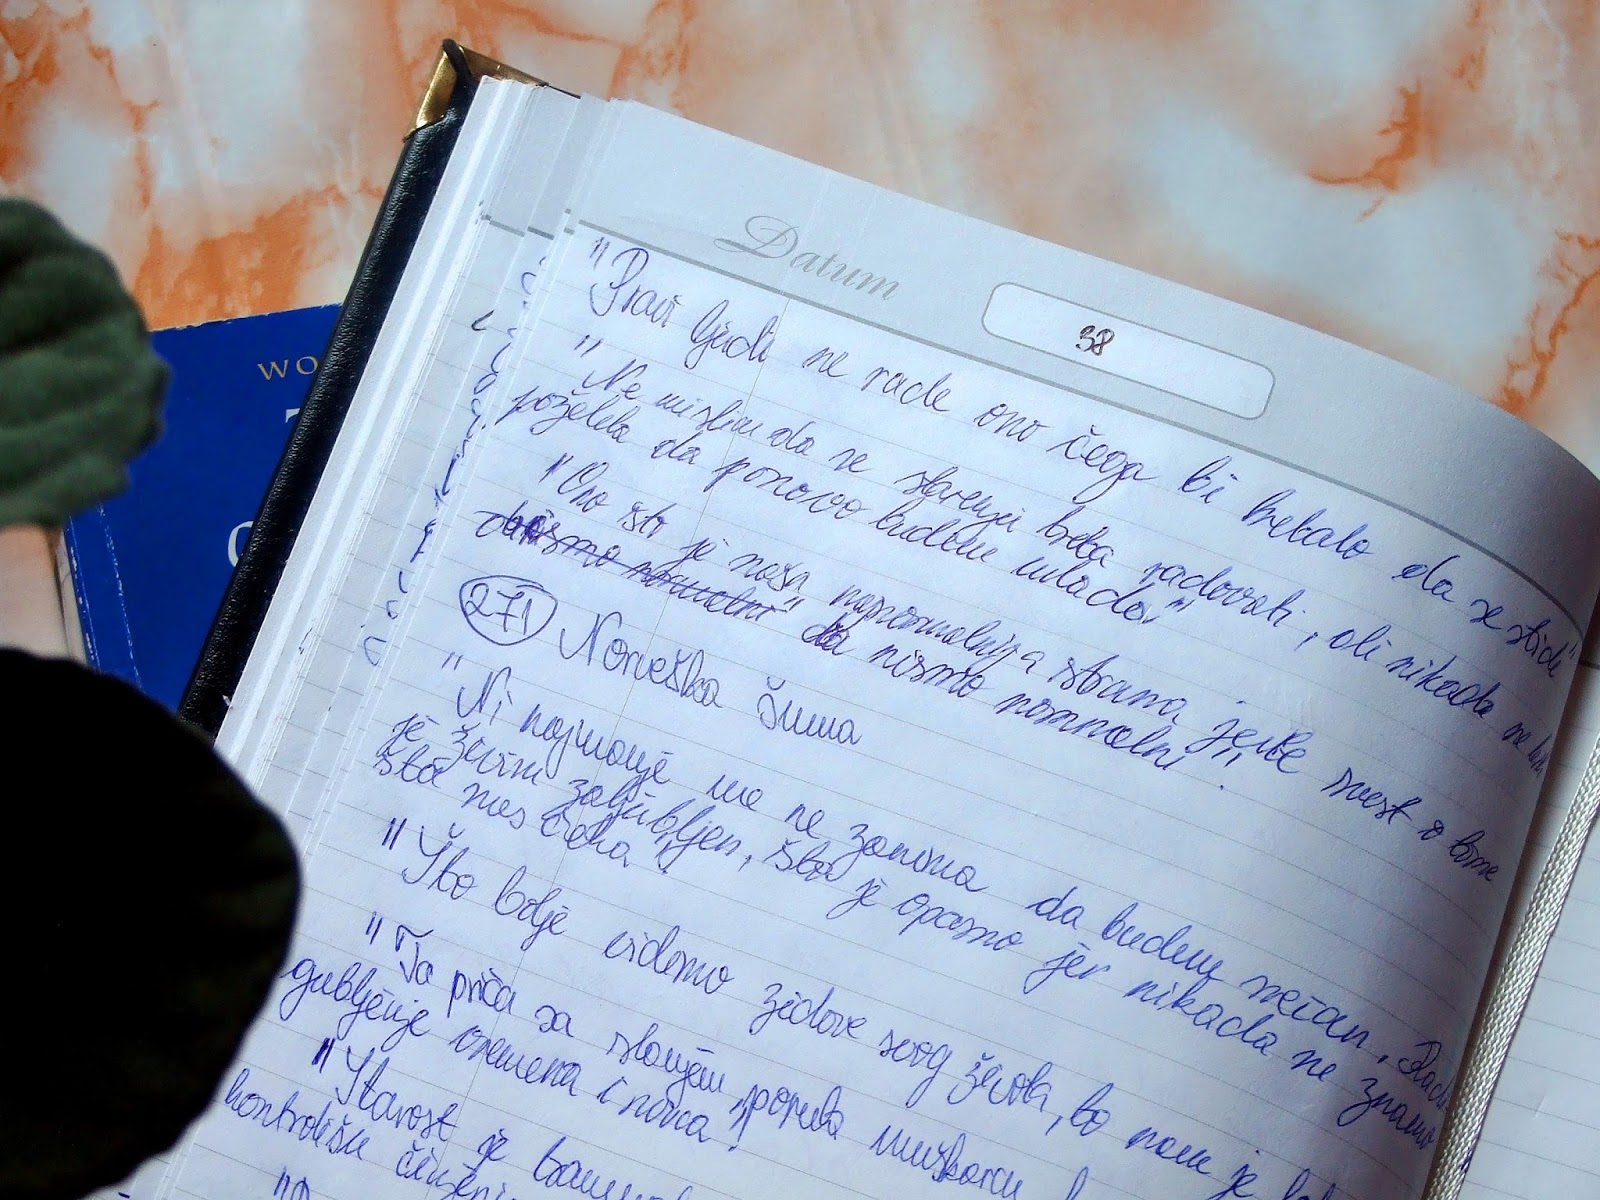 Datum
38
"Pravi ljudi ne rade ono čega bi trebalo da se stide"
"Ne mislim da se starenju treba radovati, ali nikada ne bih
poželela da ponovo budem mlada."
"Ono što je naša najnormalnija strana jeste svest o tome
da nismo normalni" da nismo normalni".
271 Norveška šuma
"Ni najmanje me ne zanima da budem srećan. Radije
je živim zaljubljen, što je opasno jer nikada ne znamo
šta nas čeka"
"Što bolje vidimo zidove svog života, to nam je
"Ta priča sa slanjem poput muškarca
gubljenje vremena i novca"
"Starost je
kontrolišu
WO